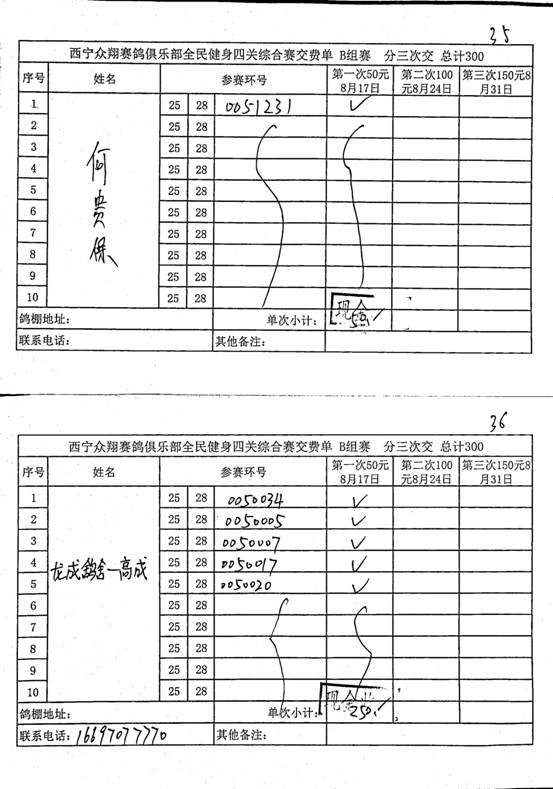 35
西宁众翔赛鸽俱乐部全民健身四关综合赛交费单 B组赛 分三次交 总计300
序号 姓名 参赛环号 第一次50元8月17日 第二次100元8月24日 第三次150元8月31日
1 25 28 0051231 ✓
2 25 28
3 25 28
4 25 28
何贵保
5 25 28
6 25 28
7 25 28
8 25 28
9 25 28
10 25 28
鸽棚地址： 单次小计： 现金 50 ✓
联系电话： 其他备注：
36
西宁众翔赛鸽俱乐部全民健身四关综合赛交费单 B组赛 分三次交 总计300
序号 姓名 参赛环号 第一次50元8月17日 第二次100元8月24日 第三次150元8月31日
1 25 28 0050034 ✓
2 25 28 0050005 ✓
3 25 28 0050007 ✓
4 25 28 0050017 ✓
龙成鸽舍一高成
5 25 28 0050020 ✓
6 25 28
7 25 28
8 25 28
9 25 28
10 25 28
鸽棚地址： 单次小计： 现金 250 ✓
联系电话：16697077770 其他备注：